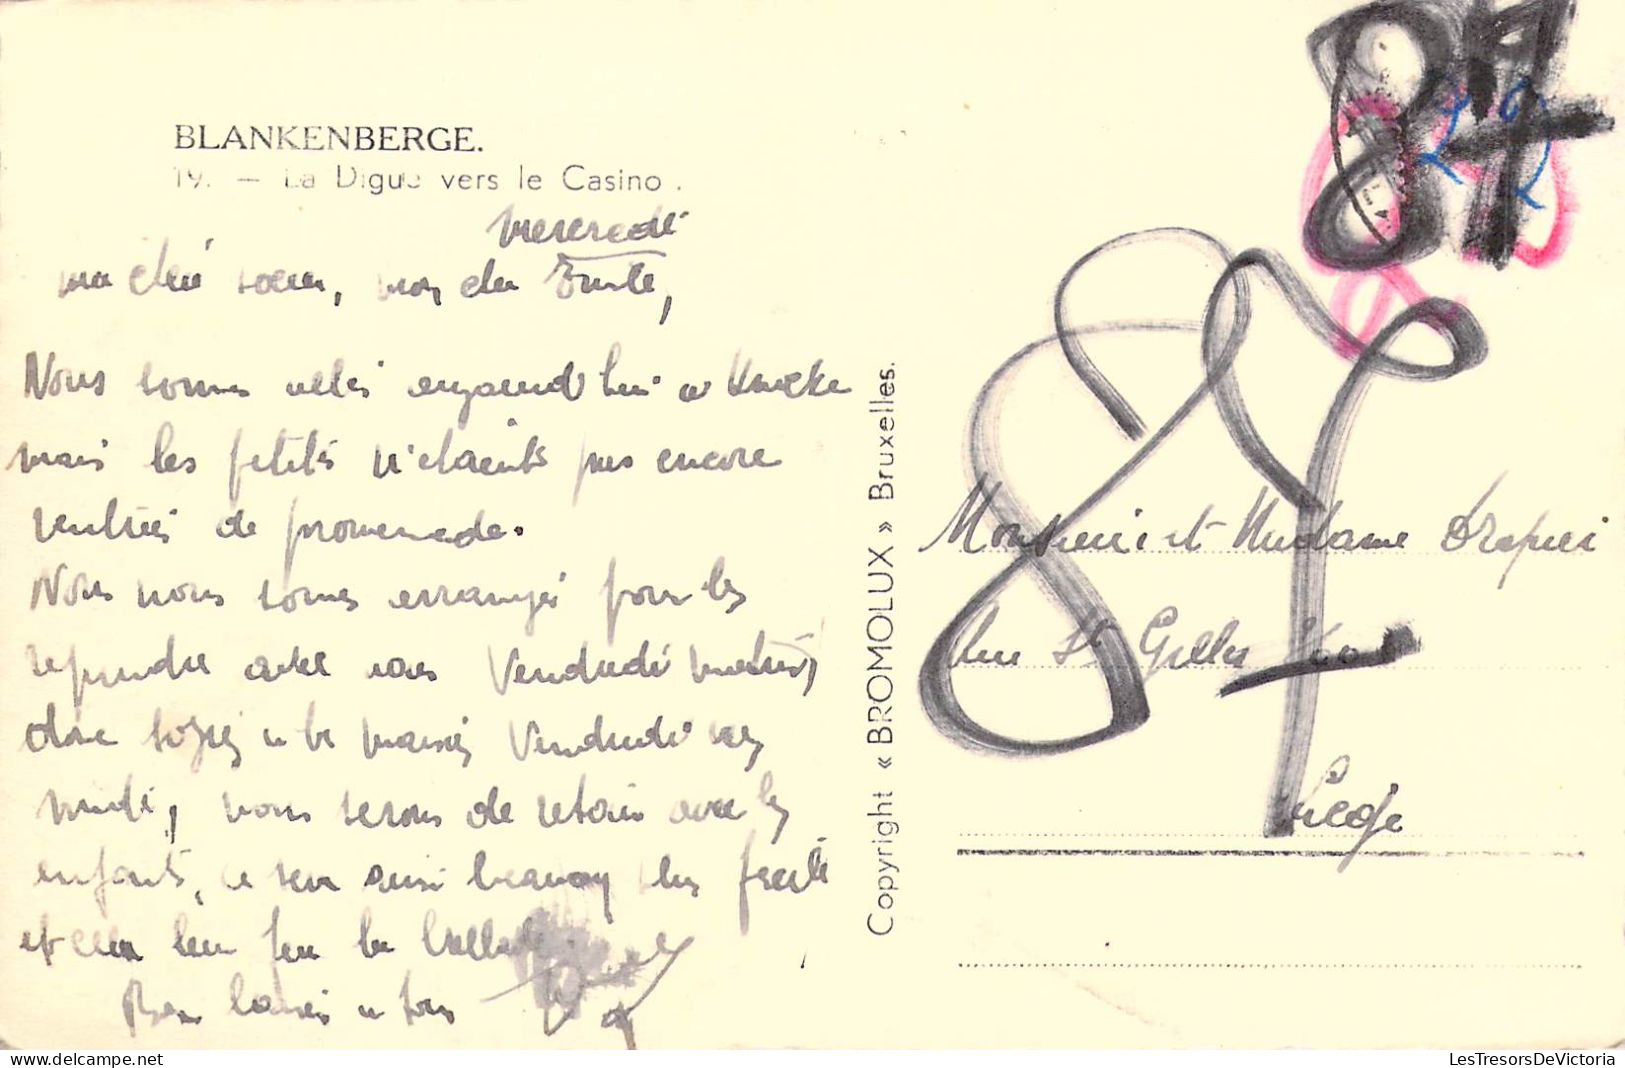 BLANKENBERGE.
19. — La Digue vers le Casino.
Mercredi
ma chère soeur, mon cher Emile,
Nous sommes allés aujourd'hui a Knocke
mais les petits n'etaients pas encore
rentrées de promenade.
Nous nous sommes arrangés pour les
reprendre avec vous Vendredi matin,
donc soyez a la maison Vendredi vers
midi, nous serons de retour avec les
enfants, ce sera aussi beaucoup plus facile
et cela leur fera la
Bons baisers a tous
Copyright « BROMOLUX » Bruxelles.
Monsieur et Madame Drapier
Rue St Gilles
Liege
87
LesTresorsDeVictoria
www.delcampe.net